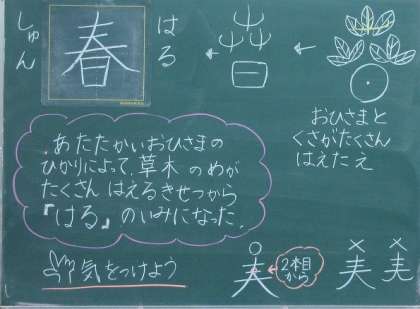 しゅん
春
はる
おひさまと
くさがたくさん
はえたえ
あたたかいおひさまの
ひかりによって、草木のめが
たくさんはえるきせつから
『はる』のいみになった。
気をつけよう
2本目
から